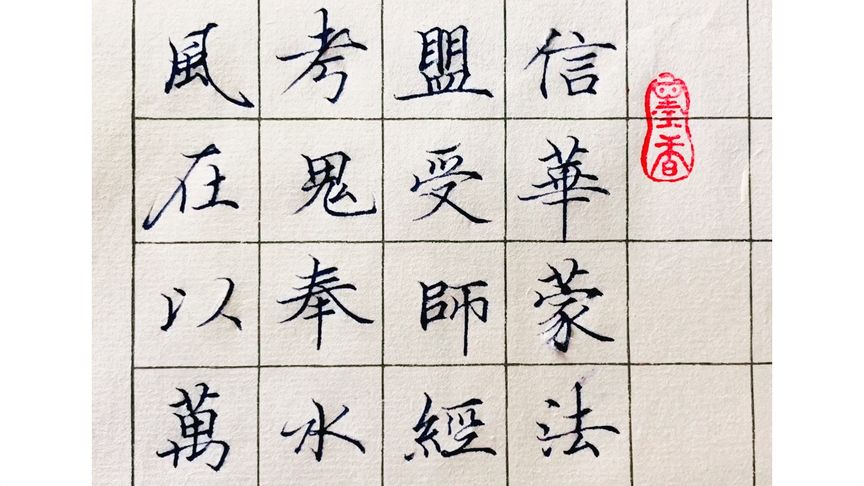 墨香
信華蒙法
盟受師經
考鬼奉水
風在以萬